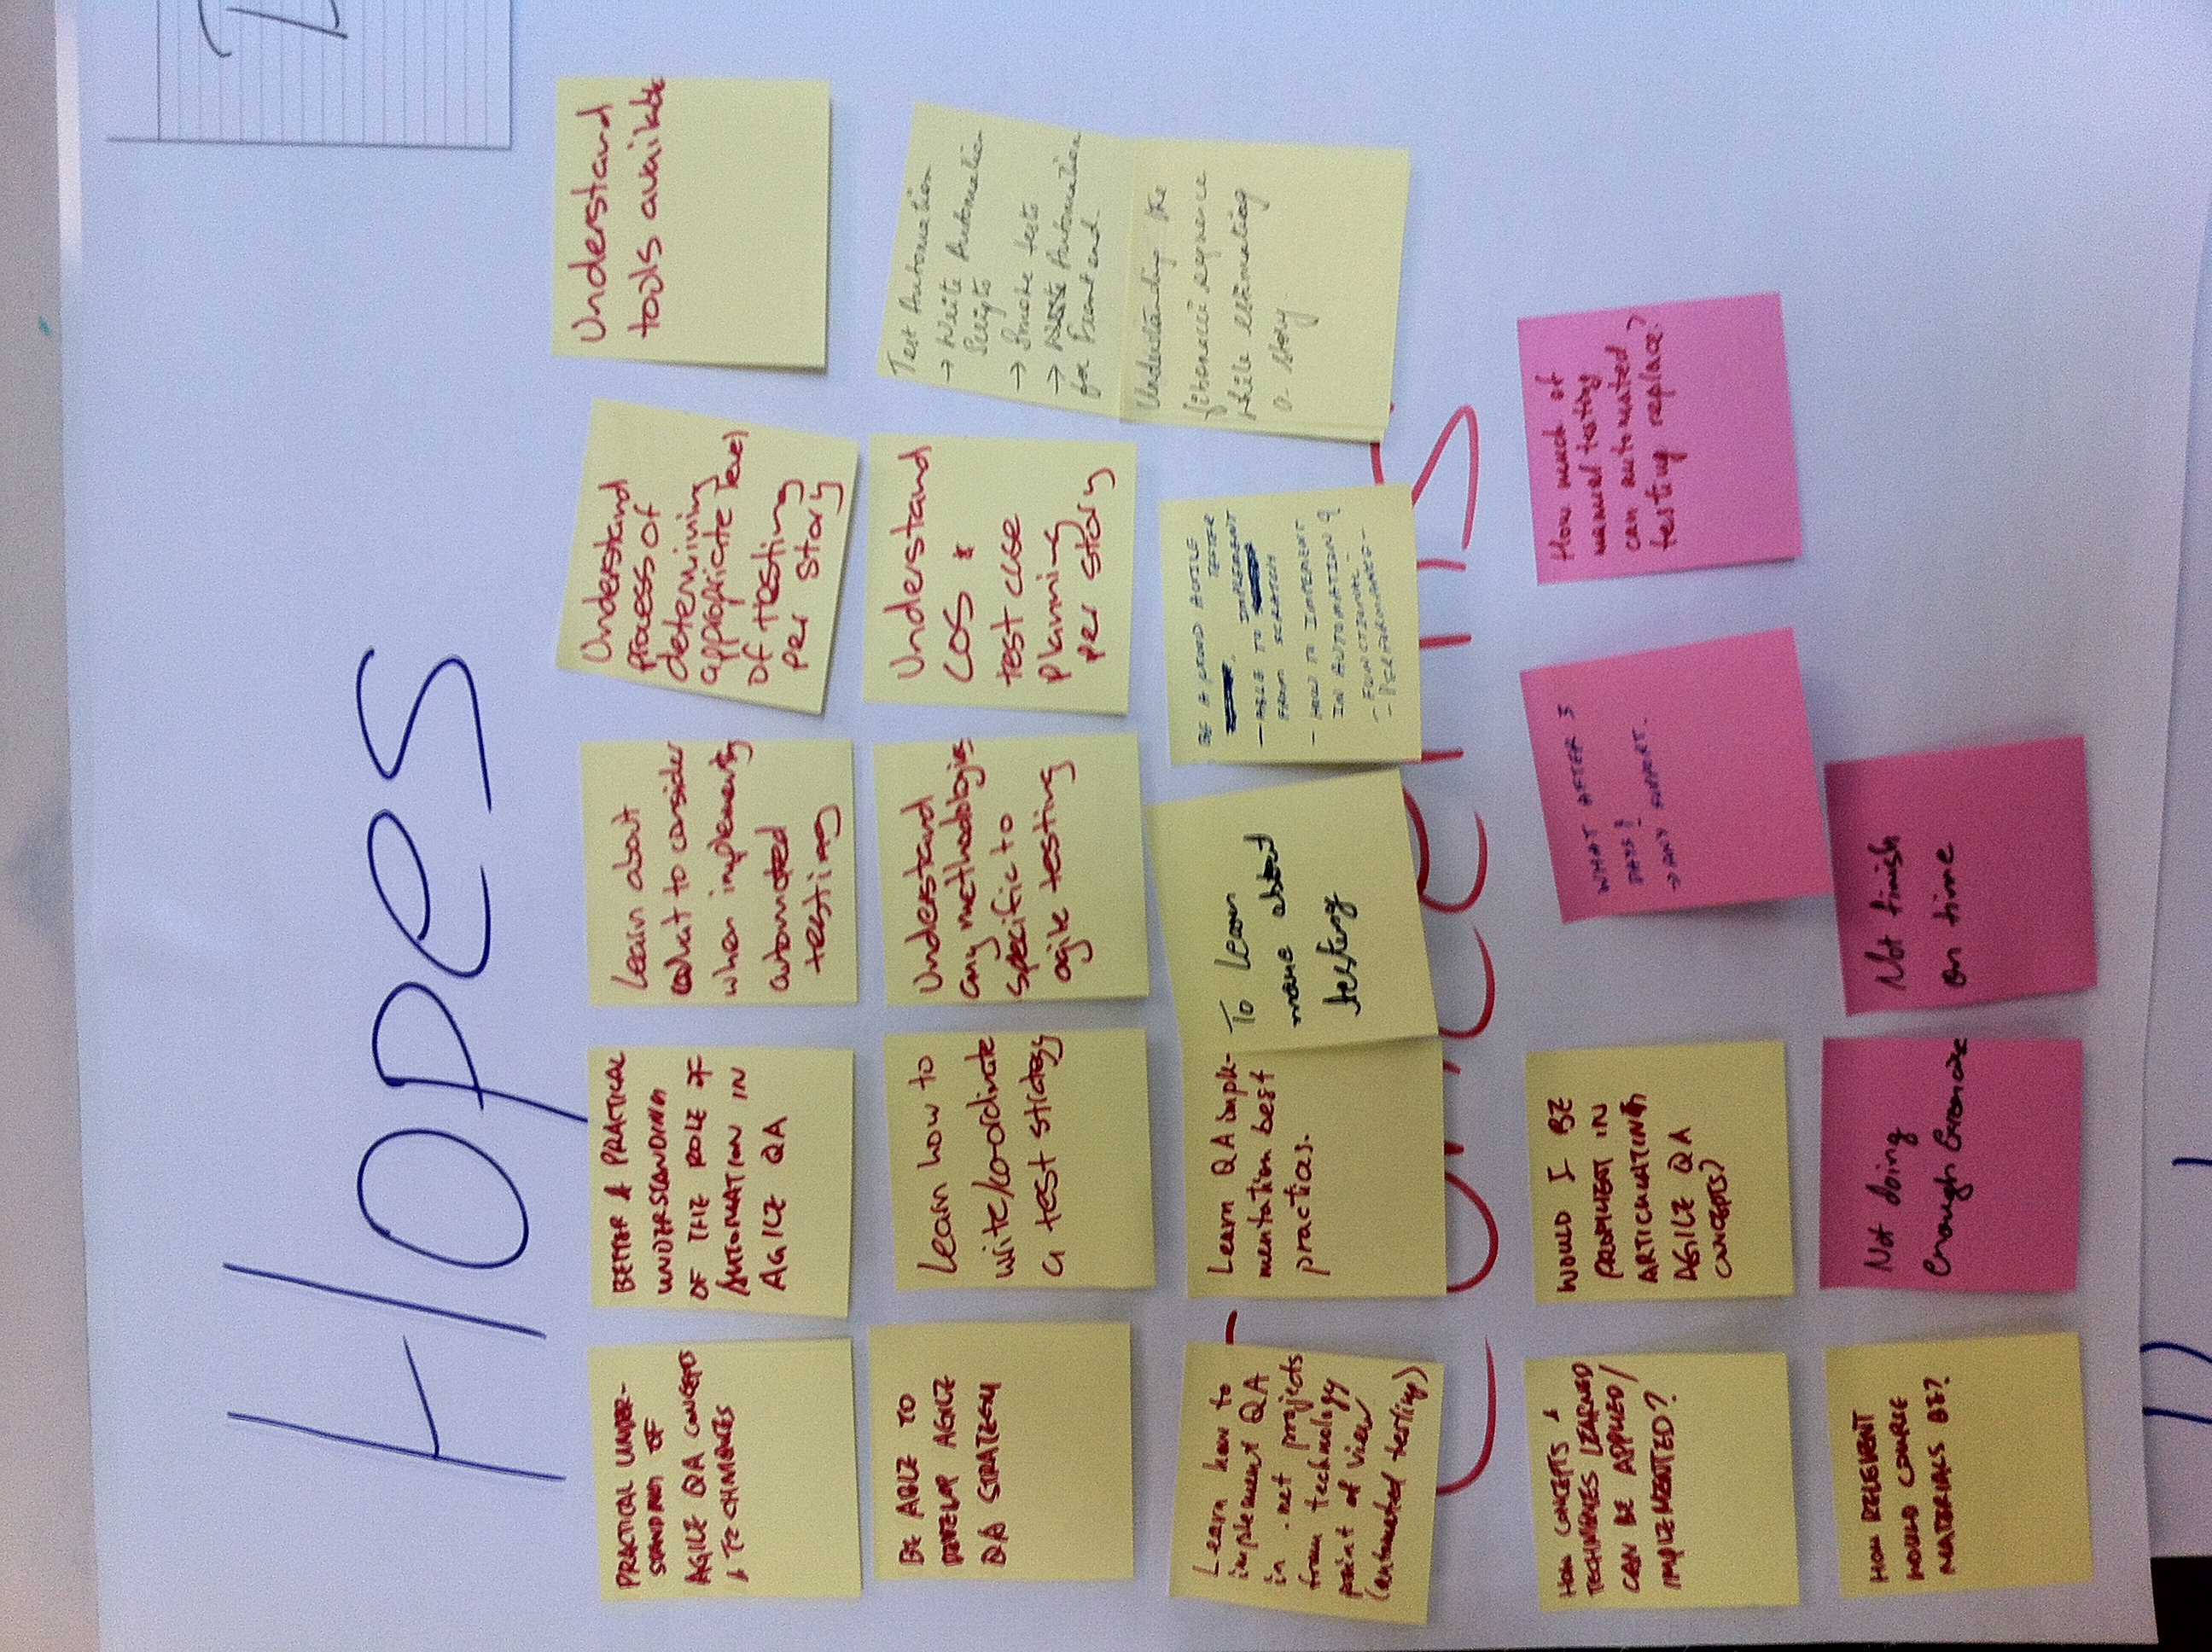 Hopes
PRACTICAL UNDER-
STANDING OF
AGILE QA CONCEPTS
& TECHNIQUES
BETTER & PRACTICAL
UNDERSTANDING
OF THE ROLE OF
AUTOMATION IN
AGILE QA
Learn about
what to consider
when implementing
automated
testing
Understand
process of
determining
appropriate level
of testing
per story
Understand
tools available
BE ABLE TO
DEVELOP AGILE
QA STRATEGY
Learn how to
write/co-ordinate
a test strategy
Understand
any methodologies
specific to
agile testing
Understand
COS &
test case
planning
per story
Test Automation
→ Write Automation
Scripts
→ Smoke tests
→ Automation
for Front end.
Learn how to
implement QA
in .net projects
from technology
point of view
(automated testing)
Learn QA imple-
mentation best
practices.
To learn
more about
testing
BE A GOOD AGILE
TESTER
- ABLE TO IMPLEMENT
FROM SCRATCH
- HOW TO IMPLEMENT
IN AUTOMATION
- FUNCTIONAL -
- PERFORMANCE -
Understanding the
fibonacci sequence
while estimating
a story.
Concerns
HOW CONCEPTS &
TECHNIQUES LEARNED
CAN BE APPLIED/
IMPLEMENTED?
WOULD I BE
PROFICIENT IN
ARTICULATING
AGILE QA
CONCEPTS?
WHAT AFTER 3
DAYS?
→ ANY SUPPORT.
How much of
manual testing
can automated
testing replace?
HOW RELEVENT
WOULD COURSE
MATERIALS BE?
Not doing
enough Exercise
Not finish
on time